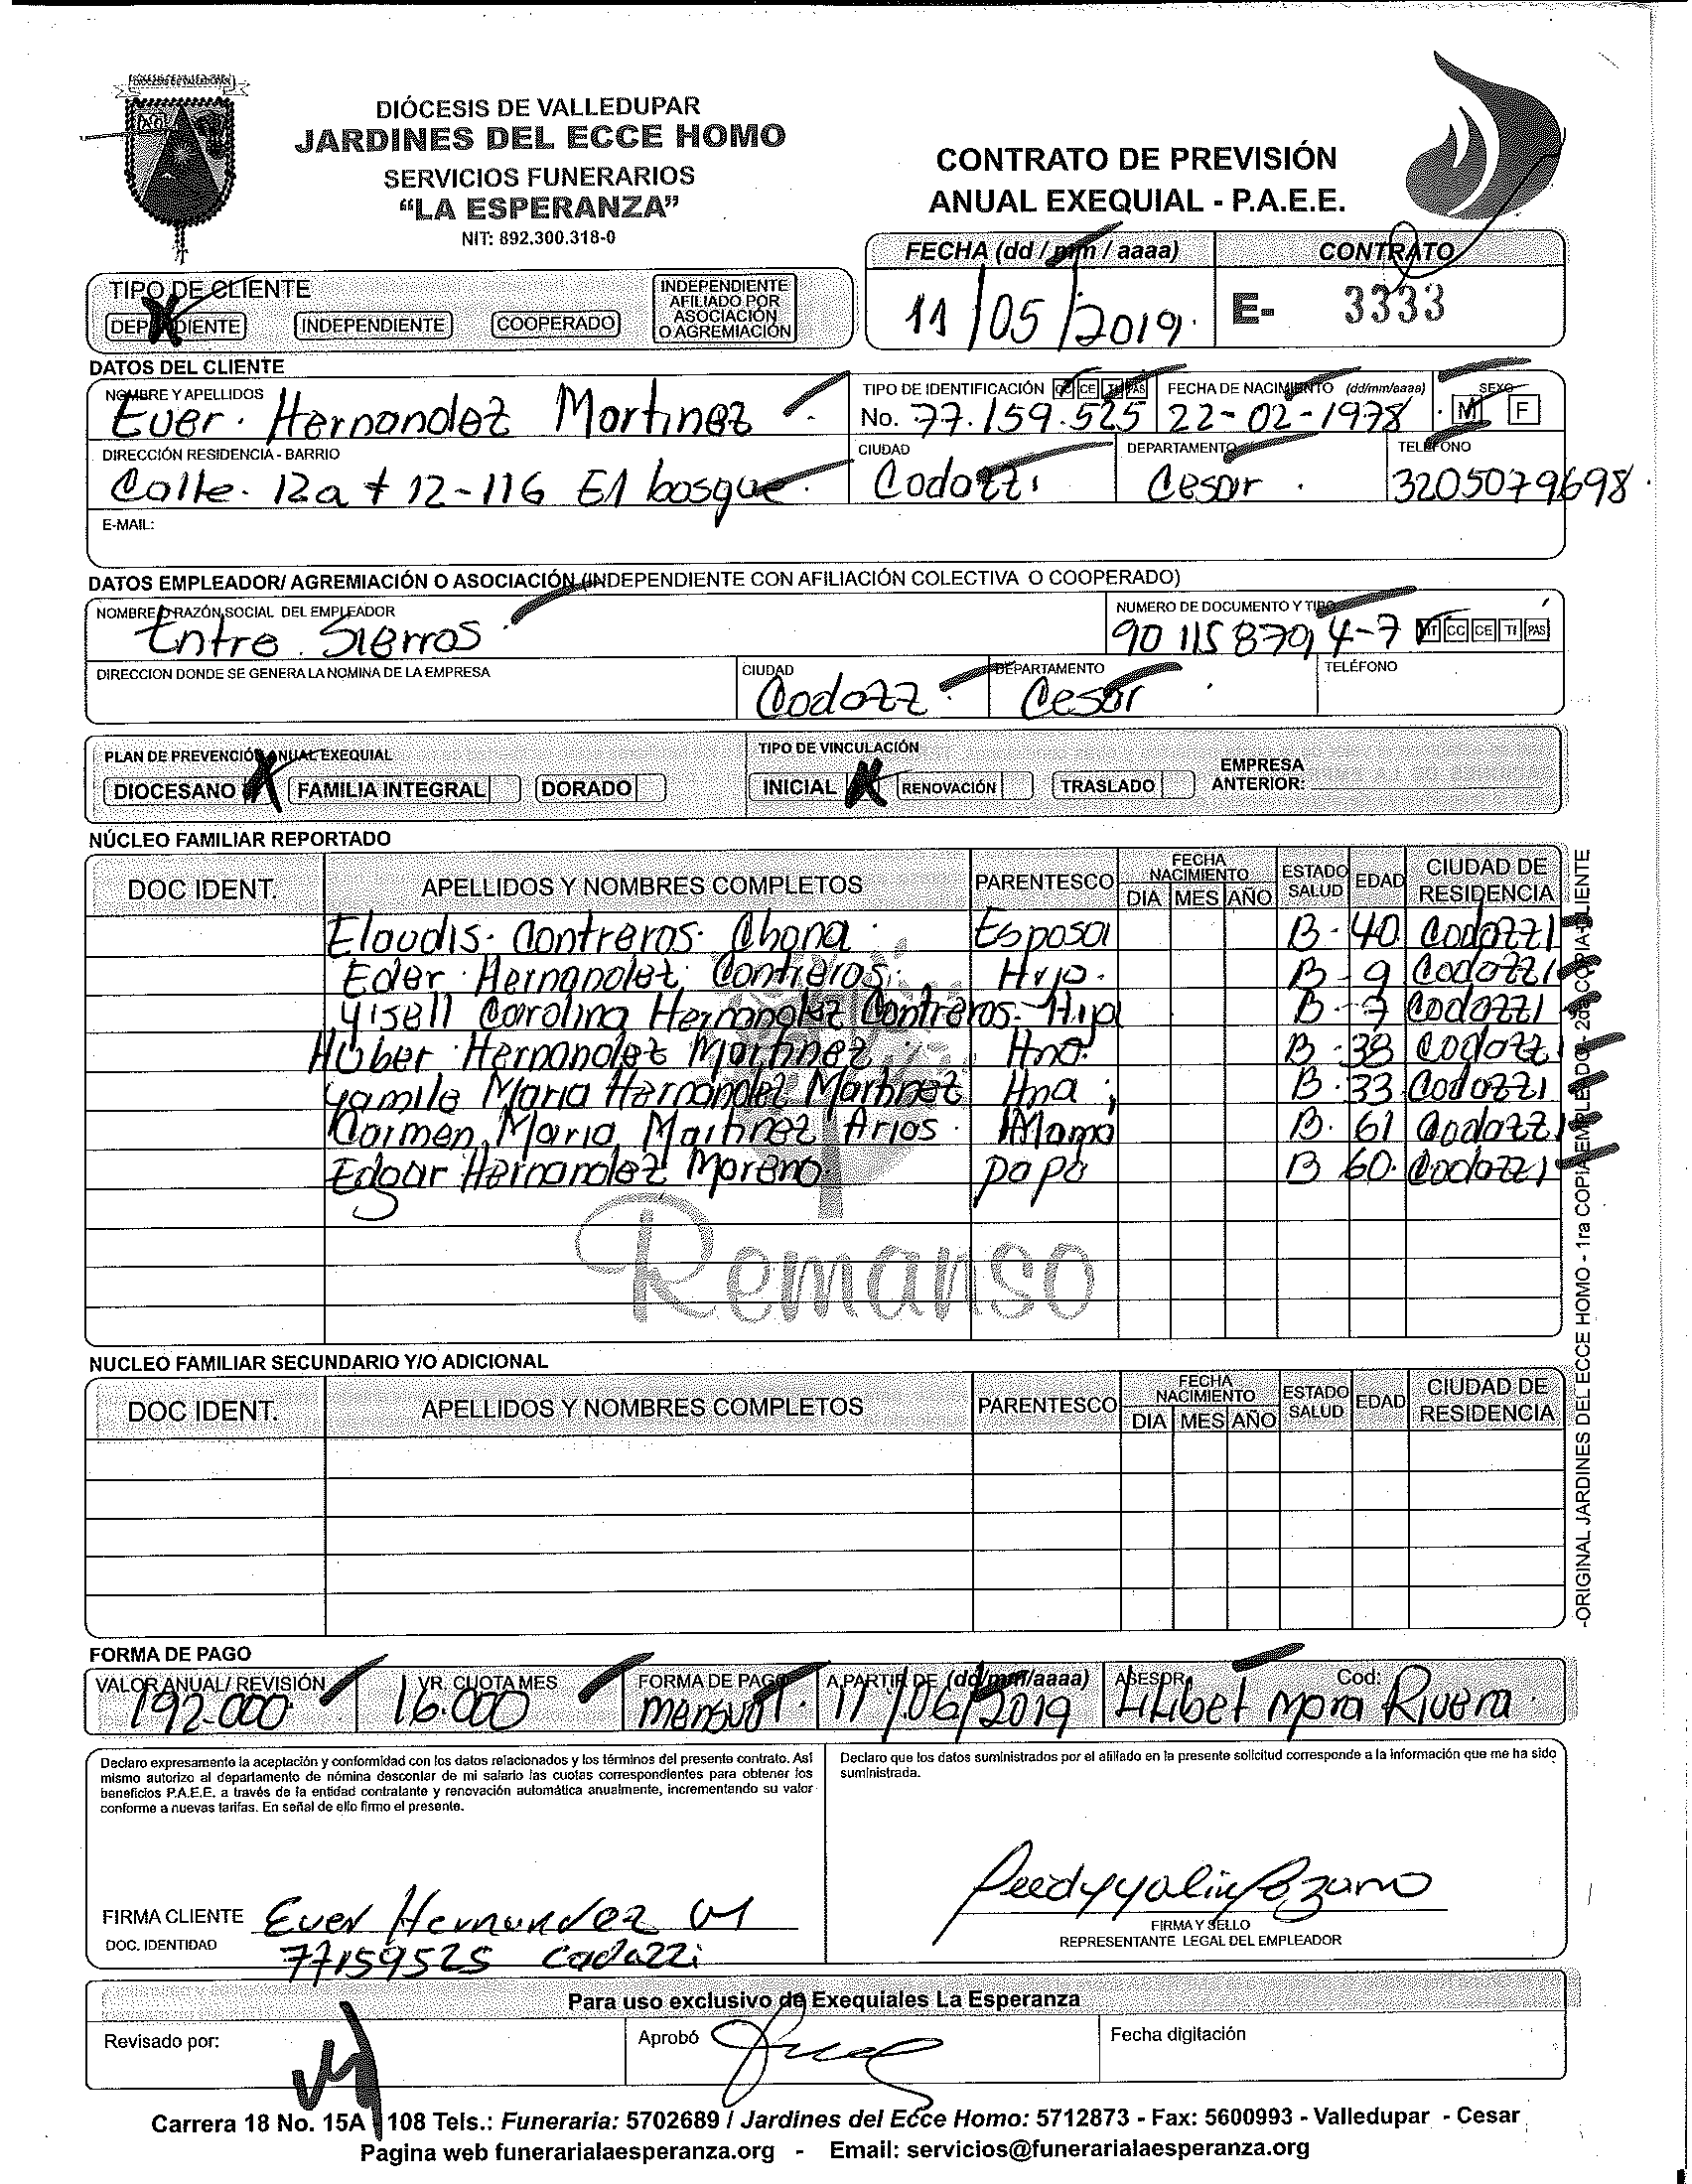 DIÓCESIS DE VALLEDUPAR
JARDINES DEL ECCE HOMO
SERVICIOS FUNERARIOS
“LA ESPERANZA”
NIT: 892.300.318-0
CONTRATO DE PREVISIÓN
ANUAL EXEQUIAL - P.A.E.E.
FECHA (dd / mm / aaaa) CONTRATO
11/05/2019. E- 3333
TIPO DE CLIENTE
DEPENDIENTE INDEPENDIENTE COOPERADO INDEPENDIENTE AFILIADO POR ASOCIACIÓN O AGREMIACIÓN
DATOS DEL CLIENTE
NOMBRE Y APELLIDOS TIPO DE IDENTIFICACIÓN CC CE TI PAS FECHA DE NACIMIENTO (dd/mm/aaaa) SEXO
Euer. Hernandez Martinez No. 77.159.525 22-02-1978 M F
DIRECCIÓN RESIDENCIA - BARRIO CIUDAD DEPARTAMENTO TELÉFONO
Calle. 12a # 12-116 El bosque. Codazzi Cesar. 3205079698.
E-MAIL:
DATOS EMPLEADOR/ AGREMIACIÓN O ASOCIACIÓN (INDEPENDIENTE CON AFILIACIÓN COLECTIVA O COOPERADO)
NOMBRE O RAZÓN SOCIAL DEL EMPLEADOR NUMERO DE DOCUMENTO Y TIPO
Entre Sierras 901158794-7 NIT CC CE TI PAS
DIRECCION DONDE SE GENERA LA NOMINA DE LA EMPRESA CIUDAD DEPARTAMENTO TELÉFONO
Codazz. Cesar.
PLAN DE PREVENCIÓN ANUAL EXEQUIAL TIPO DE VINCULACIÓN
DIOCESANO X FAMILIA INTEGRAL DORADO INICIAL X RENOVACIÓN TRASLADO EMPRESA ANTERIOR:
NÚCLEO FAMILIAR REPORTADO
DOC IDENT. APELLIDOS Y NOMBRES COMPLETOS PARENTESCO FECHA NACIMIENTO DIA MES AÑO ESTADO SALUD EDAD CIUDAD DE RESIDENCIA
Elaudis. Contreras. Chona. Esposa B- 40 Codazzi
Eder Hernandez Contreras. Hijo. B- 9 Codazzi
Yisell Carolina Hernandez Contreras- Hija B- 7 Codazzi
Huber Hernandez Martinez Hno. B- 38 Codazzi
Yamile Maria Hernandez Martinez Hna B- 33 Codazzi
Carmen Maria Martinez Arias. Mama B. 61 Codazzi
Edgar Hernandez Moreno papa B 60. Codazzi
Remanso
NUCLEO FAMILIAR SECUNDARIO Y/O ADICIONAL
DOC IDENT. APELLIDOS Y NOMBRES COMPLETOS PARENTESCO FECHA NACIMIENTO DIA MES AÑO ESTADO SALUD EDAD CIUDAD DE RESIDENCIA
-ORIGINAL JARDINES DEL ECCE HOMO - 1ra COPIA EMPLEADOR - 2da COPIA CLIENTE
FORMA DE PAGO
VALOR ANUAL/ REVISIÓN VR. CUOTA MES FORMA DE PAGO A PARTIR DE (dd/mm/aaaa) ASESOR Cod:
192.000 16.000 mensual. 11/06/2019 Lilibet Mora Rivera.
Declaro expresamente la aceptación y conformidad con los datos relacionados y los términos del presente contrato. Así
mismo autorizo al departamento de nómina descontar de mi salario las cuotas correspondientes para obtener los
beneficios P.A.E.E. a través de la entidad contratante y renovación automática anualmente, incrementando su valor
conforme a nuevas tarifas. En señal de ello firmo el presente.
Declaro que los datos suministrados por el afiliado en la presente solicitud corresponde a la información que me ha sido
suministrada.
FIRMA CLIENTE Euer Hernandez M
DOC. IDENTIDAD 77159525 Codazzi
FIRMA Y SELLO
REPRESENTANTE LEGAL DEL EMPLEADOR
Para uso exclusivo de Exequiales La Esperanza
Revisado por: Aprobó Fecha digitación
Carrera 18 No. 15A 108 Tels.: Funeraria: 5702689 / Jardines del Ecce Homo: 5712873 - Fax: 5600993 - Valledupar - Cesar
Pagina web funerarialaesperanza.org - Email: servicios@funerarialaesperanza.org